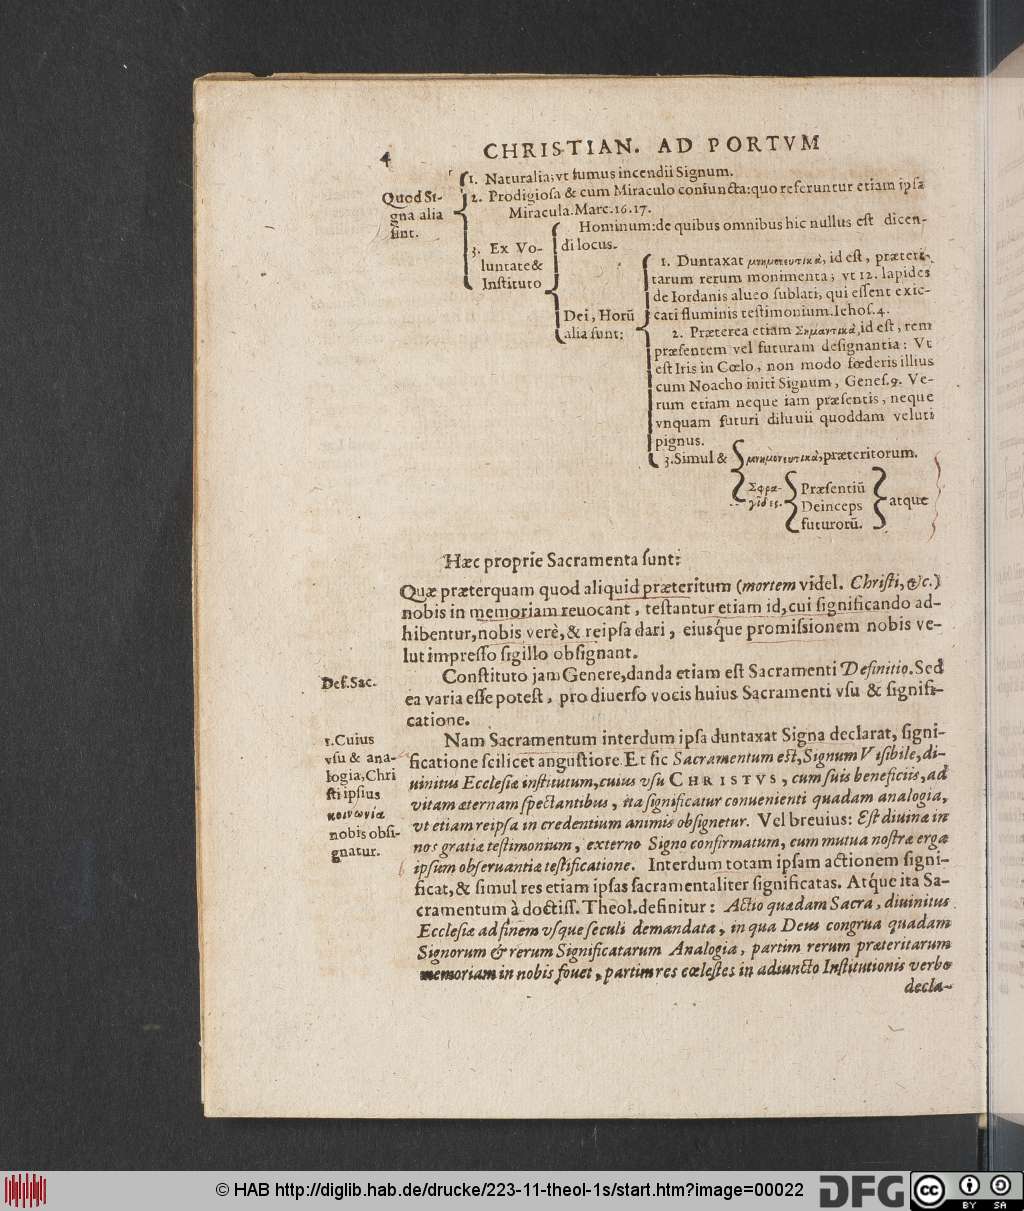 4
CHRISTIAN. AD PORTVM
Quod Si-
gna alia
ſint.
1. Naturalia; vt fumus incendii Signum.
2. Prodigioſa & cum Miraculo coniuncta: quo referuntur etiam ipſa
Miracula. Marc. 16. 17.
3. Ex Vo-
luntate &
Inſtituto
Hominum: de quibus omnibus hic nullus eſt dicen-
di locus.
Dei, Horū
alia ſunt:
1. Duntaxat μνημονευτικὰ, id eſt, præteri-
tarum rerum monimenta; vt 12. lapides
de Iordanis alueo ſublati, qui eſſent exic-
cati fluminis teſtimonium. Iehoſ. 4.
2. Præterea etiam Σημαντικὰ, id eſt, rem
præſentem vel futuram deſignantia: Vt
eſt Iris in Cœlo, non modo fœderis illius
cum Noacho initi Signum, Geneſ. 9. Ve-
rum etiam neque iam præſentis, neque
vnquam futuri diluuii quoddam veluti
pignus.
3. Simul & μνημονευτικὰ, præteritorum.
Σφρα-
γῖδες.
Præſentiū
Deinceps
futurorū.
atque
Hæc proprie Sacramenta ſunt:
Quæ præterquam quod aliquid præteritum (mortem videl. Chriſti, &c.)
nobis in memoriam reuocant, teſtantur etiam id, cui ſignificando ad-
hibentur, nobis verè, & reipſa dari, eiusq́ue promiſsionem nobis ve-
lut impreſſo ſigillo obſignant.
Def. Sac.
Conſtituto jam Genere, danda etiam eſt Sacramenti Definitio. Sed
ea varia eſſe poteſt, pro diuerſo vocis huius Sacramenti vſu & ſignifi-
catione.
1. Cuius
vſu & ana-
logia, Chri
ſti ipſius
κοινωνία
nobis obſi-
gnatur.
Nam Sacramentum interdum ipſa duntaxat Signa declarat, ſigni-
ficatione ſcilicet anguſtiore. Et ſic Sacramentum eſt, Signum Viſibile, di-
uinitus Eccleſiæ inſtitutum, cuius vſu CHRISTVS, cum ſuis beneficiis, ad
vitam æternam ſpectantibus, ita ſignificatur conuenienti quadam analogia,
vt etiam reipſa in credentium animis obſignetur. Vel breuius: Eſt diuinæ in
nos gratiæ teſtimonium, externo Signo confirmatum, cum mutua noſtræ erga
ipſum obſeruantiæ teſtificatione. Interdum totam ipſam actionem ſigni-
ficat, & ſimul res etiam ipſas ſacramentaliter ſignificatas. Atq́ue ita Sa-
cramentum à doctiſſ. Theol. definitur: Actio quædam Sacra, diuinitus
Eccleſiæ ad finem vſque ſeculi demandata, in qua Deus congrua quadam
Signorum & rerum Significatarum Analogia, partim rerum præteritarum
memoriam in nobis fouet, partim res cœleſtes in adiuncto Inſtitutionis verbo
decla-
© HAB http://diglib.hab.de/drucke/223-11-theol-1s/start.htm?image=00022
DFG
cc
BY SA